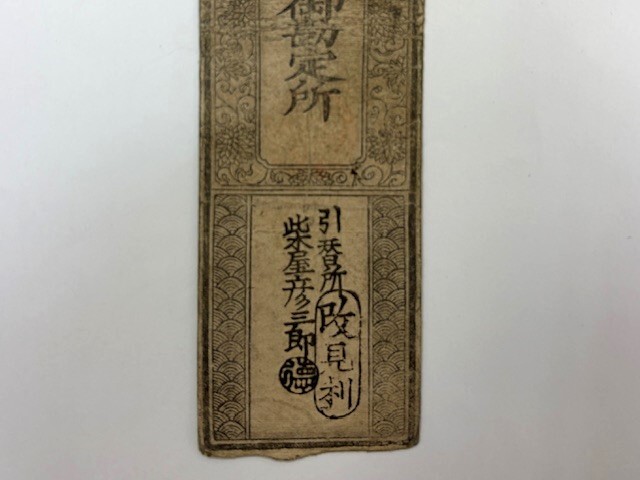 御勘定所
引替所
柴屋彦三郎
德
改見剎